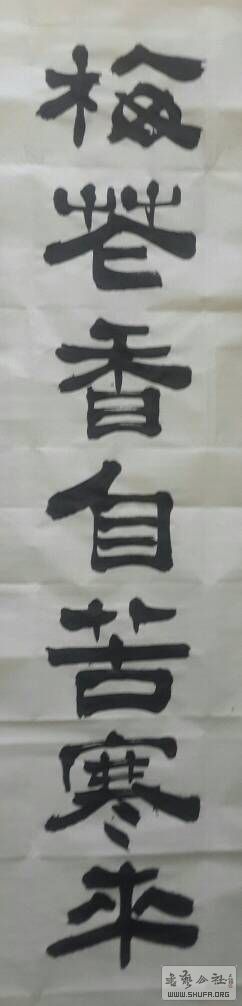 梅花香自苦寒来
書藝公社
WWW.SHUFA.ORG